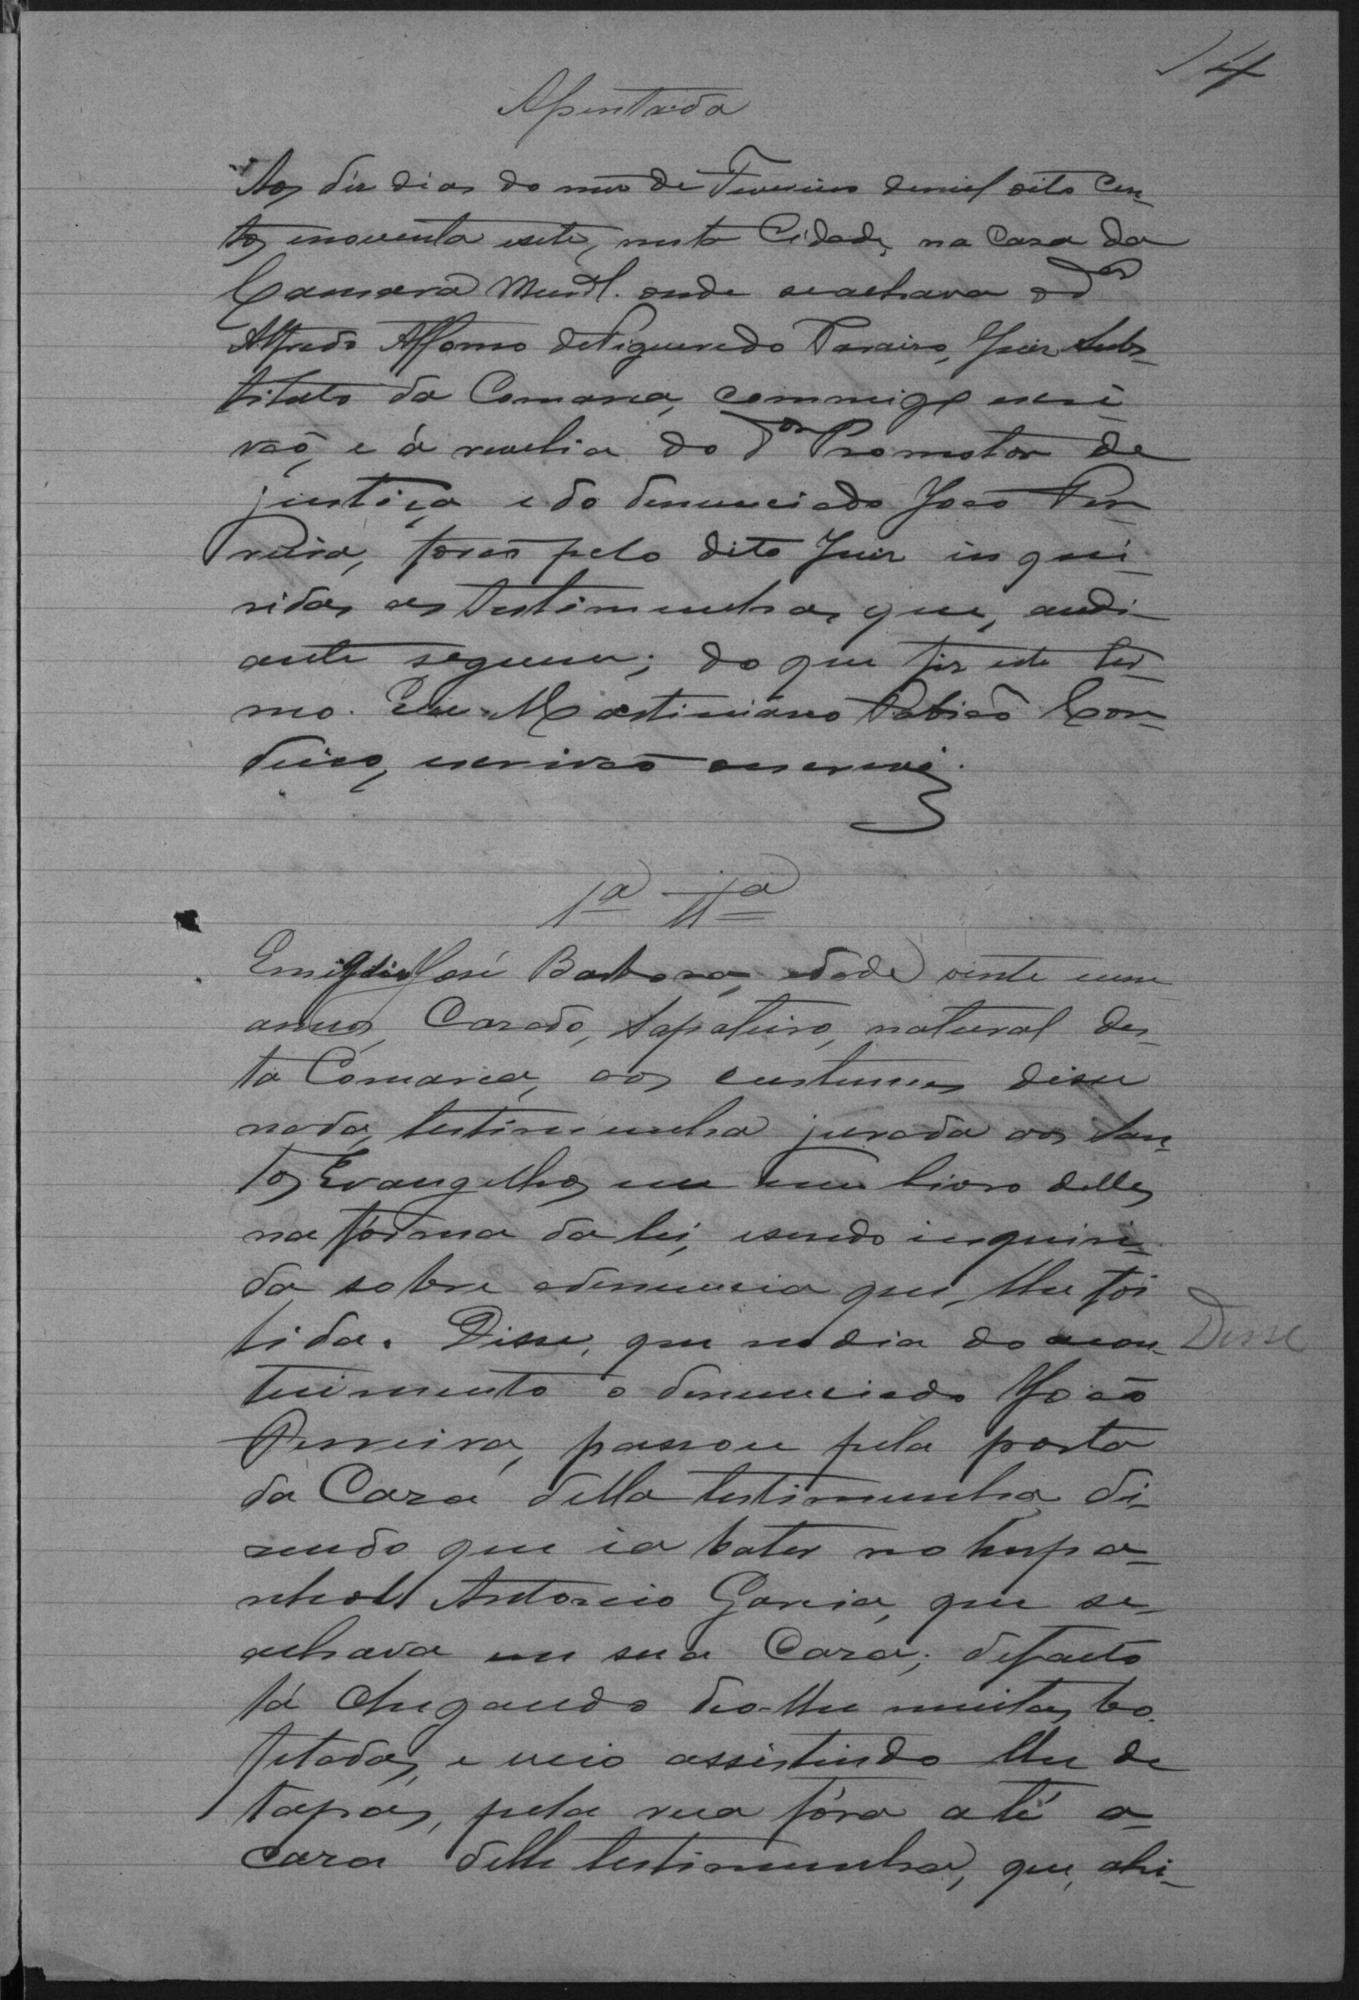 14
Assentada
Aos dez dias do mez de Fevereiro de mil oito cen-
tos e noventa e sete, nesta Cidade, na Casa da
Camara Munal. onde se achava o Dor
Alfredo Affonso de Figueredo Paraiso, Juiz Subs-
tituto da Comarca, commigo escri-
vão, e á revelia do Dor Promotor de
justiça e do denunciado João Per-
reira, forão pelo dito Juiz inqui-
ridas as testimunhas que, audi-
ante seguem; do que fiz este ter-
mo. Eu Martiniano Fabião Cor-
deiro, escrivão o escrevi.
1a Ta
Emigdio José Barbosa, edade vinte e um
annos, Casado, Sapateiro, natural des-
ta Comarca, aos custumes disse
nada, testimunha jurada aos San-
tos Evangelhos em um livro delles
na fórma da lei, e sendo inquiri-
da sobre a denuncia que, lhe foi
lida. Disse, que no dia do acon-
Disse
tecimento o denunciado João
Perreira, passou pela porta
da Casa della testimunha di-
zendo que ia bater no hespa-
nhol Antonio Garcia, que se
achava em sua Casa; de facto
lá chegando deo-lhe muitas bo-
fetadas, e veio assistindo lhe de
tapas, pela rua fóra até a
casa delle testimunha, que, ahi-